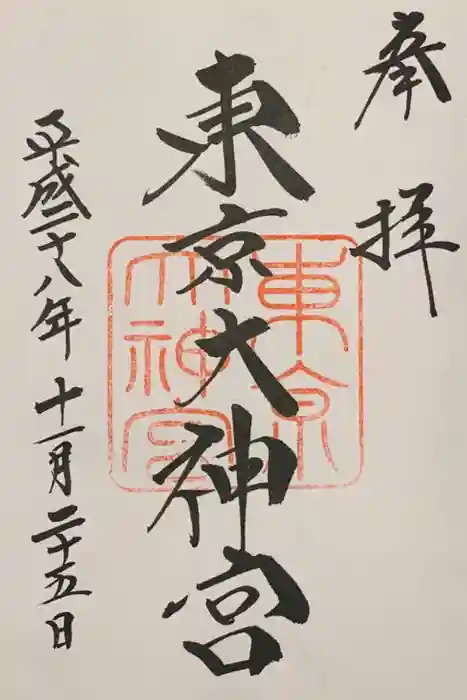 奉拝
東京大神宮
東京大神宮
平成二十八年十一月二十五日